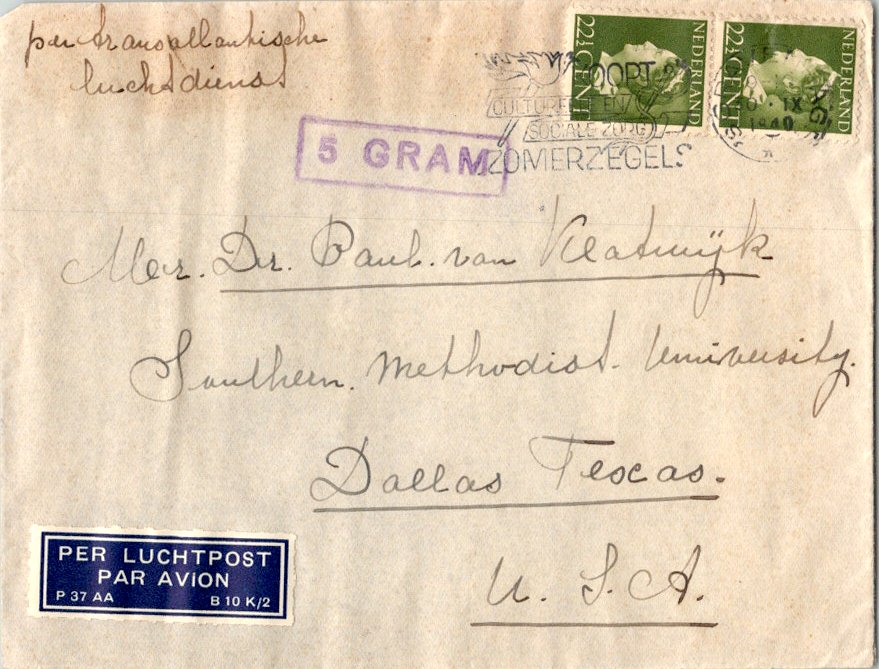 per transatlantische
luchtdienst
NEDERLAND
22½ CENT
NEDERLAND
22½ CENT
KOOPT
CULTURELE EN
SOCIALE ZORG
ZOMERZEGELS
IX
1940
5 GRAM
Mer. Dr. Paul. van Klatwyk
Southern. Methodist. University.
Dallas Texas.
U. S. A.
PER LUCHTPOST
PAR AVION
P 37 AA B 10 K/2